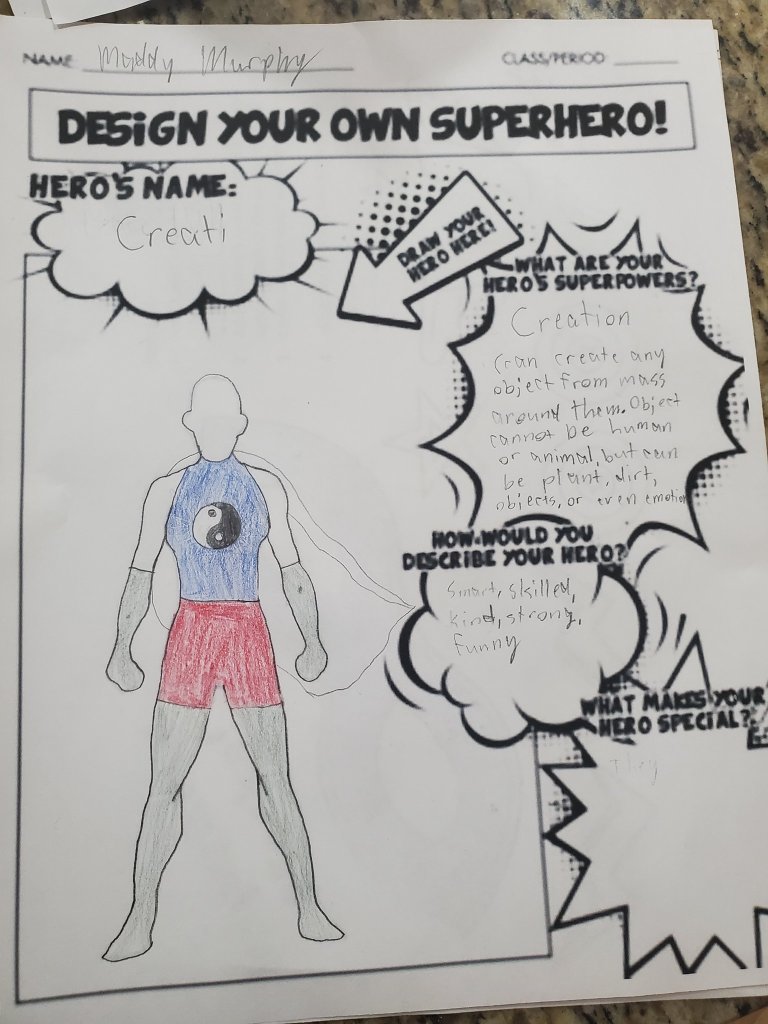 NAME Maddy Murphy CLASS/PERIOD:
DESIGN YOUR OWN SUPERHERO!
HERO'S NAME:
Creati
DRAW YOUR
HERO HERE!
WHAT ARE YOUR
HERO'S SUPERPOWERS?
Creation
Can create any
object from mass
around them. Object
cannot be human
or animal, but can
be plant, dirt,
objects, or even emotion
HOW WOULD YOU
DESCRIBE YOUR HERO?
Smart, skilled,
kind, strong,
funny
WHAT MAKES YOUR
HERO SPECIAL?
They